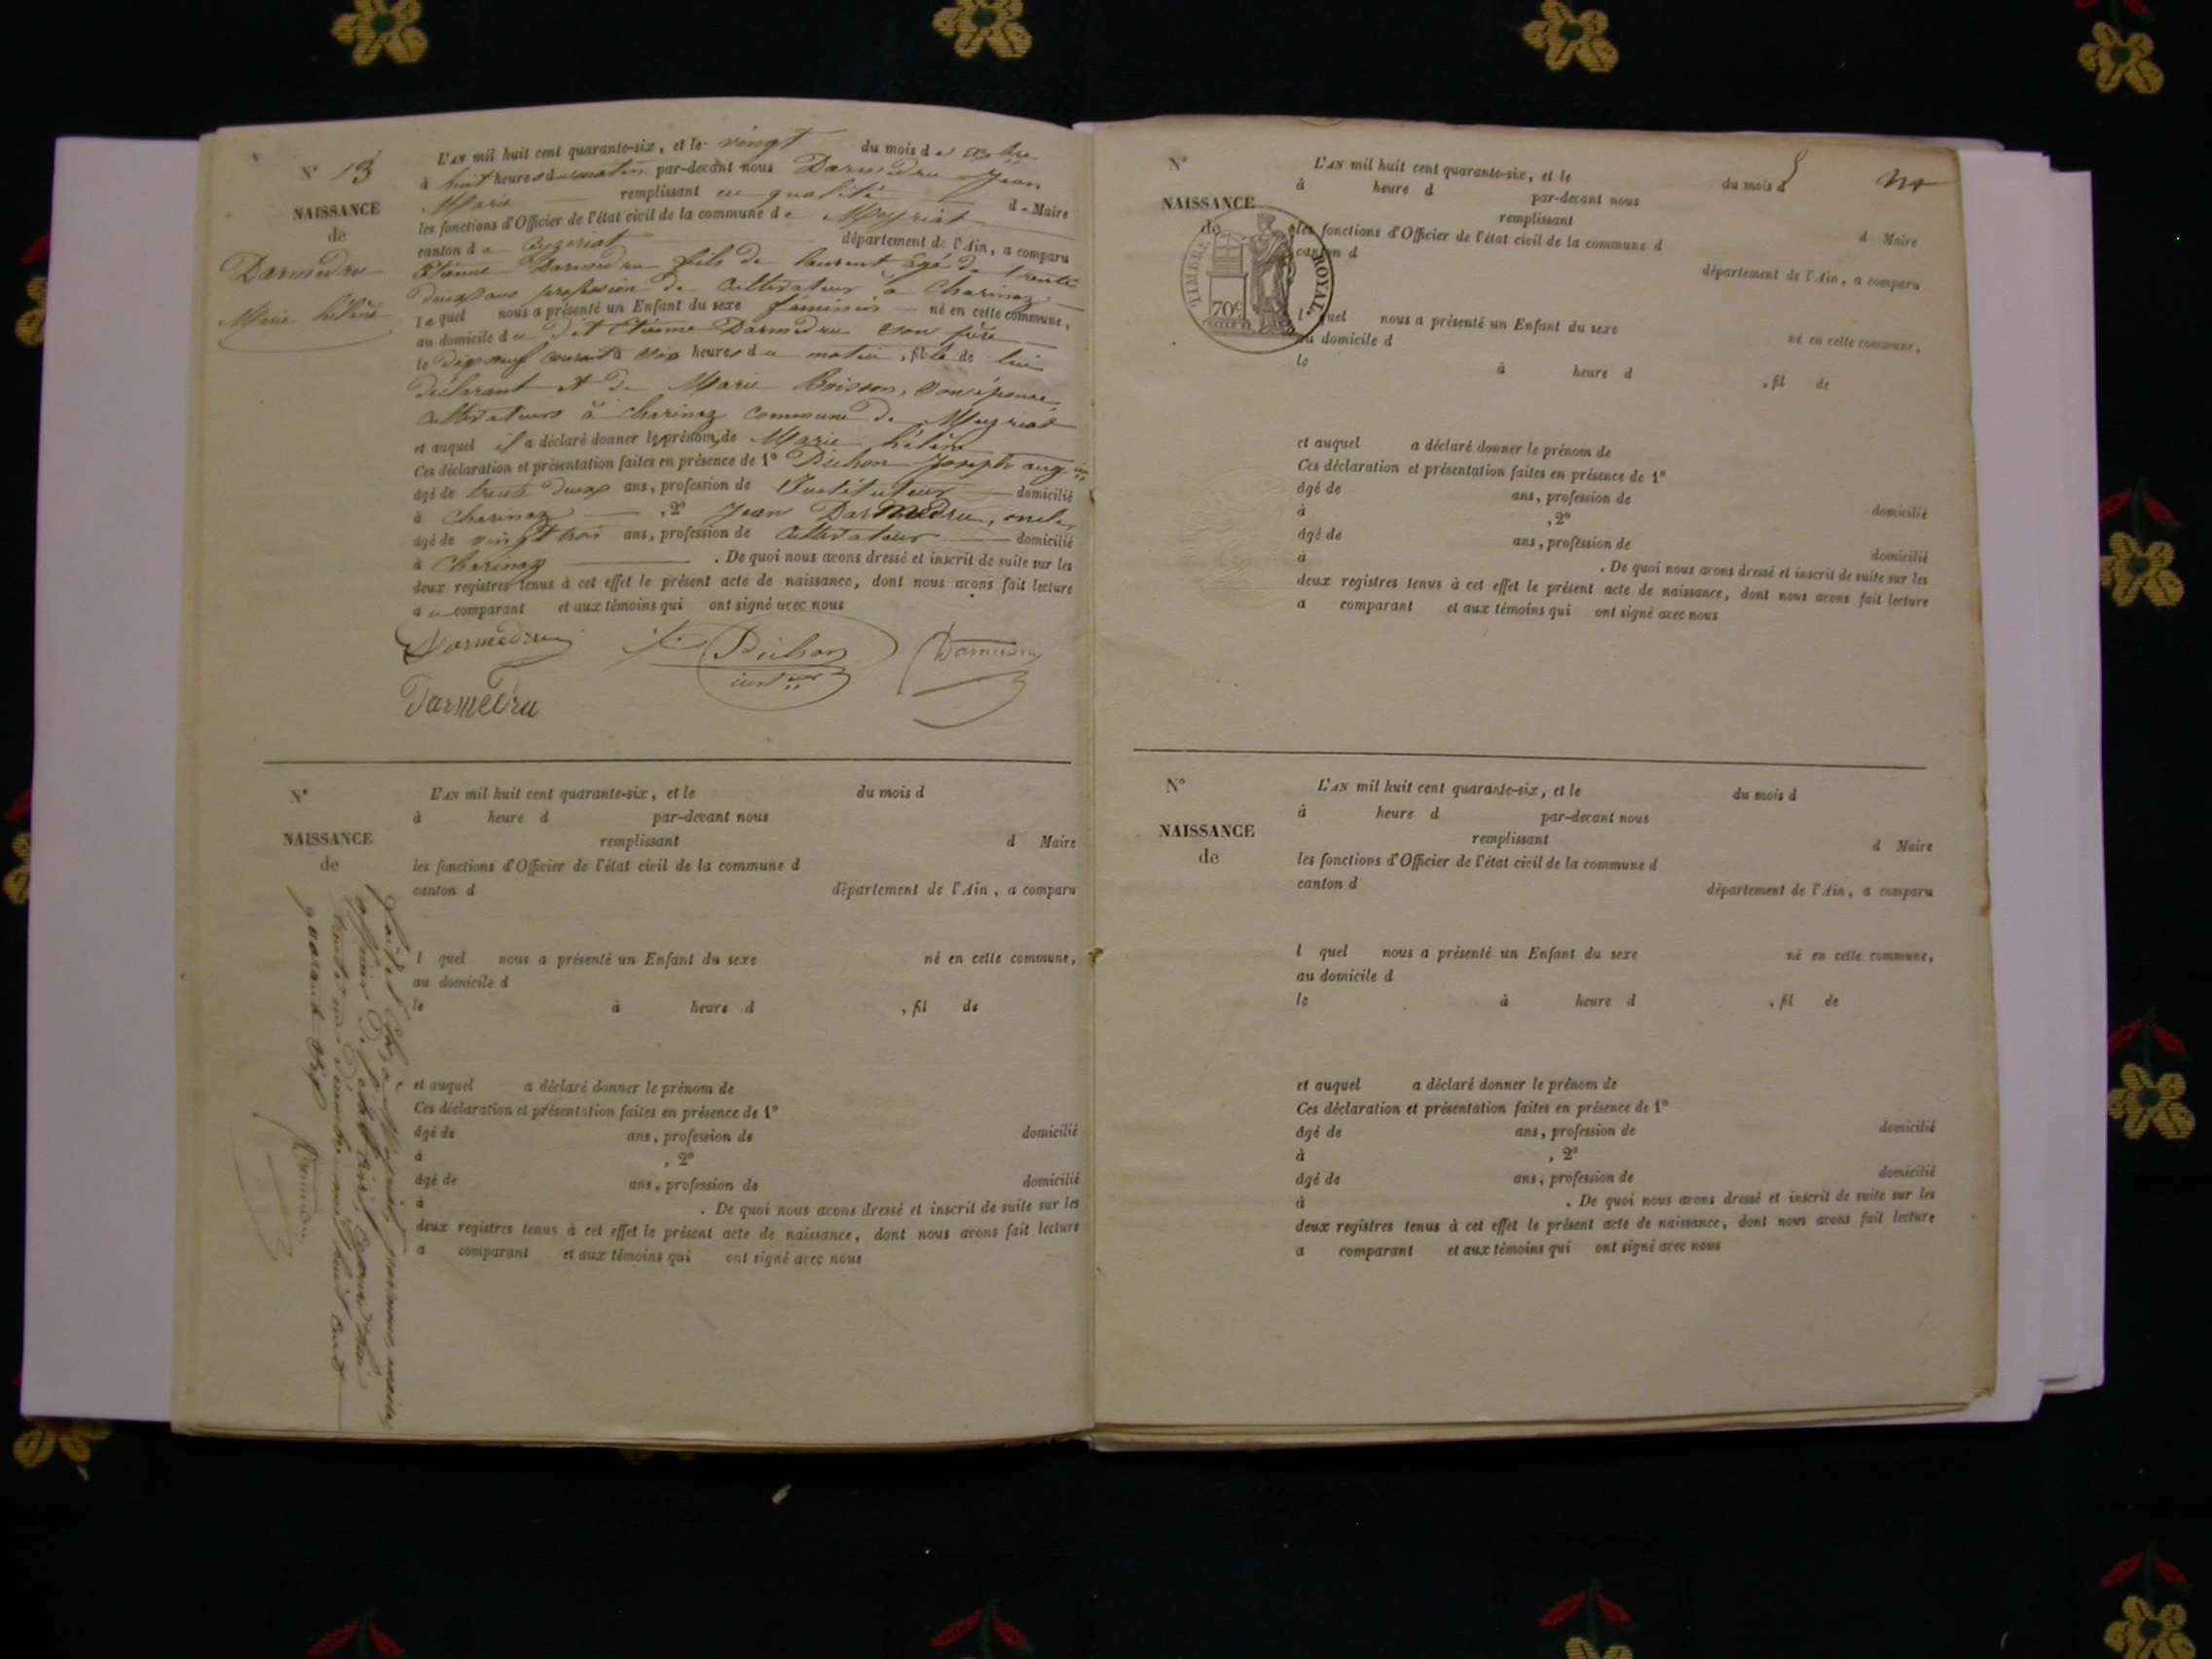 N° 13
NAISSANCE
de
Darmedru
Marie hélène
L'AN mil huit cent quarante-six, et le vingt du mois de xbre
à huit heures du matin par-devant nous Darmedru Jean
Marie remplissant en qualité de Maire
les fonctions d'Officier de l'état civil de la commune de Meyriat
canton de Ceyzeriat département de l'Ain, a comparu
Etienne Darmedru fils de laurent âgé de trente
deux ans profession de Cultivateur à Charinaz
lequel nous a présenté un Enfant du sexe féminin né en cette commune,
au domicile du dit Etienne Darmedru son père
le dix neuf courant à six heures du matin, fille de lui
déclarant et de Marie Boisson, son épouse,
Cultivateurs à charinaz commune de Meyriat
et auquel il a déclaré donner le prénom de Marie hélène
Ces déclaration et présentation faites en présence de 1° Pichon Joseph aug
âgé de trente deux ans, profession de Instituteur domicilié
à Charinaz , 2° Jean Darmedru, oncle,
âgé de vingt trois ans, profession de Cultivateur domicilié
à Charinaz . De quoi nous avons dressé et inscrit de suite sur les
deux registres tenus à cet effet le présent acte de naissance, dont nous avons fait lecture
au comparant et aux témoins qui ont signé avec nous
Darmedru Pichon Darmedru
Darmedru
N°
NAISSANCE
de
L'AN mil huit cent quarante-six, et le du mois d
à heure d par-devant nous
remplissant d Maire
les fonctions d'Officier de l'état civil de la commune d
canton d département de l'Ain, a comparu
l quel nous a présenté un Enfant du sexe né en cette commune,
au domicile d
le à heure d , fil de
et auquel a déclaré donner le prénom de
Ces déclaration et présentation faites en présence de 1°
âgé de ans, profession de domicilié
à , 2°
âgé de ans, profession de domicilié
à . De quoi nous avons dressé et inscrit de suite sur les
deux registres tenus à cet effet le présent acte de naissance, dont nous avons fait lecture
a comparant et aux témoins qui ont signé avec nous
à Meyriat, par nous, maire,
officier de l'état civil, Ce jourd'hui
trente un décembre mil huit cent
quarante six
Darmedru
N°
NAISSANCE
de
TIMBRE ROYAL
70c
L'AN mil huit cent quarante-six, et le du mois d
à heure d par-devant nous
remplissant d Maire
les fonctions d'Officier de l'état civil de la commune d
canton d département de l'Ain, a comparu
l quel nous a présenté un Enfant du sexe né en cette commune,
au domicile d
le à heure d , fil de
et auquel a déclaré donner le prénom de
Ces déclaration et présentation faites en présence de 1°
âgé de ans, profession de domicilié
à , 2°
âgé de ans, profession de domicilié
à . De quoi nous avons dressé et inscrit de suite sur les
deux registres tenus à cet effet le présent acte de naissance, dont nous avons fait lecture
a comparant et aux témoins qui ont signé avec nous
N°
NAISSANCE
de
L'AN mil huit cent quarante-six, et le du mois d
à heure d par-devant nous
remplissant d Maire
les fonctions d'Officier de l'état civil de la commune d
canton d département de l'Ain, a comparu
l quel nous a présenté un Enfant du sexe né en cette commune,
au domicile d
le à heure d , fil de
et auquel a déclaré donner le prénom de
Ces déclaration et présentation faites en présence de 1°
âgé de ans, profession de domicilié
à , 2°
âgé de ans, profession de domicilié
à . De quoi nous avons dressé et inscrit de suite sur les
deux registres tenus à cet effet le présent acte de naissance, dont nous avons fait lecture
a comparant et aux témoins qui ont signé avec nous